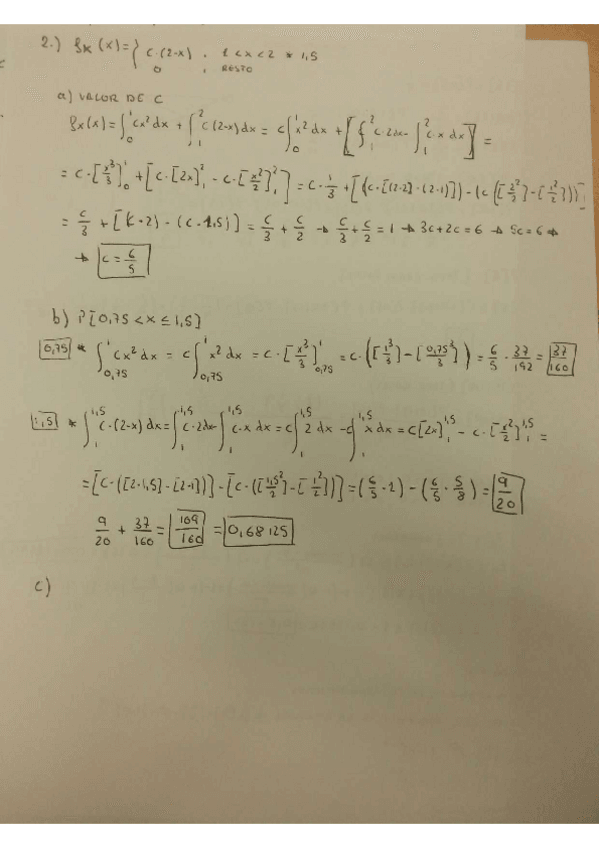 2.) fx (x) = { c·(2-x) , 1 < x < 2 * 1,5
0 , RESTO
a) VALOR DE C
fx(x) = ∫₀¹ cx² dx + ∫₁² c(2-x) dx = c ∫₀¹ x² dx + [ ∫₁² c·2dx - ∫₁² c·x dx ] =
= c·[x³/3]₀¹ + [c·[2x]₁² - c·[x²/2]₁²] = c·1/3 + [(c·[(2·2]-(2·1)]) - (c([2²/2]-[1²/2]))]
= c/3 + [(c·2) - (c·1,5)] = c/3 + c/2 → c/3 + c/2 = 1 → 3c+2c = 6 → 5c = 6 →
→ c = 6/5
b) P[0,75 < x ≤ 1,5]
0,75 * ∫₀,₇₅¹ cx² dx = c ∫₀,₇₅¹ x² dx = c·[x³/3]₀,₇₅¹ = c·([1³/3]-[0,75³/3]) = 6/5 · 37/192 = 37/160
1,5 * ∫₁¹,⁵ c·(2-x) dx = ∫₁¹,⁵ c·2dx - ∫₁¹,⁵ c·x dx = c ∫₁¹,⁵ 2 dx - c ∫₁¹,⁵ x dx = c[2x]₁¹,⁵ - c·[x²/2]₁¹,⁵ =
= [c·([2·1,5]-[2·1])] - [c·([1,5²/2]-[1²/2])] = (6/5·1) - (6/5·5/8) = 9/20
9/20 + 37/160 = 109/160 = 0,68125
c)